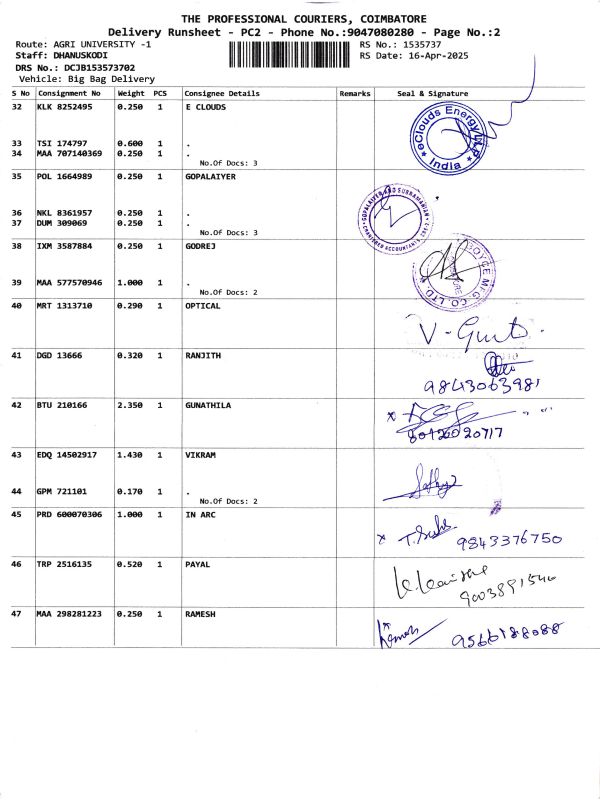 THE PROFESSIONAL COURIERS, COIMBATORE
Delivery Runsheet - PC2 - Phone No.:9047080280 - Page No.:2
Route: AGRI UNIVERSITY -1 RS No.: 1535737
Staff: DHANUSKODI RS Date: 16-Apr-2025
DRS No.: DCJB153573702
Vehicle: Big Bag Delivery
S No Consignment No Weight PCS Consignee Details Remarks Seal & Signature
32 KLK 8252495 0.250 1 E CLOUDS
eClouds Energy LLP
India
33 TSI 174797 0.600 1 .
34 MAA 707140369 0.250 1 .
No.Of Docs: 3
35 POL 1664989 0.250 1 GOPALAIYER
GOPALAIYER AND SUBRAMANIAN
CHARTERED ACCOUNTANTS
36 NKL 8361957 0.250 1 .
37 DUM 309069 0.250 1 .
No.Of Docs: 3
38 IXM 3587884 0.250 1 GODREJ
BOYCE MFG. CO. LTD.
39 MAA 577570946 1.000 1 .
No.Of Docs: 2
40 MRT 1313710 0.290 1 OPTICAL
41 DGD 13666 0.320 1 RANJITH
9843063981
42 BTU 210166 2.350 1 GUNATHILA
43 EDQ 14502917 1.430 1 VIKRAM
44 GPM 721101 0.170 1 .
No.Of Docs: 2
45 PRD 600070306 1.000 1 IN ARC
9843376750
46 TRP 2516135 0.520 1 PAYAL
47 MAA 298281223 0.250 1 RAMESH
9566188088